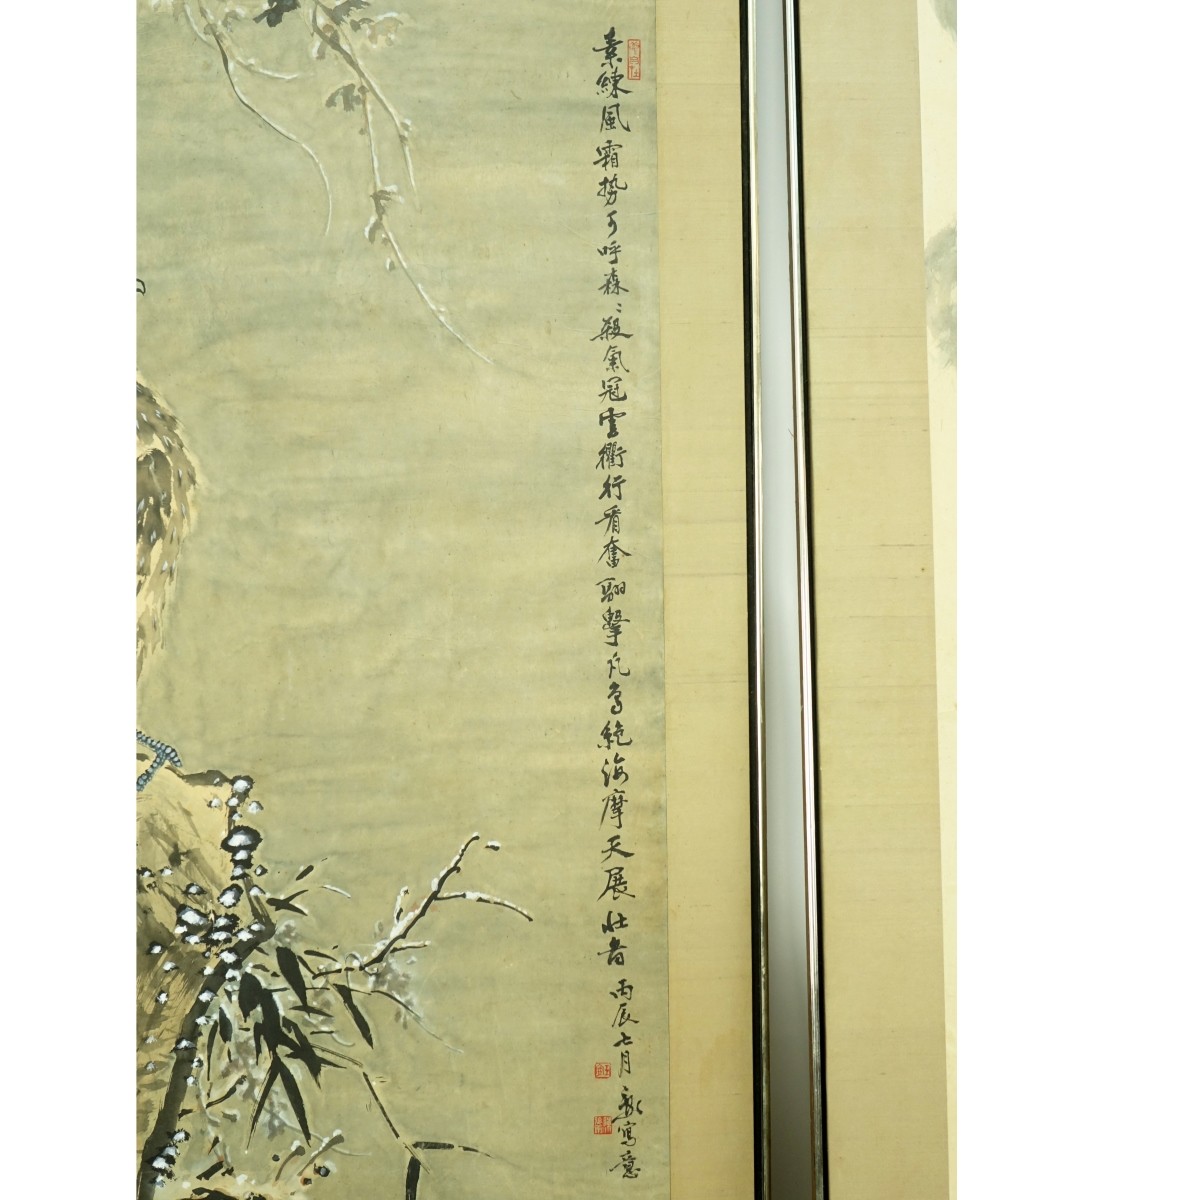 素練風霜勢可呼森〻殺氣冠雲衢行看奮翮擊凡鳥絕海摩天展壯啚
丙辰七月
寫意